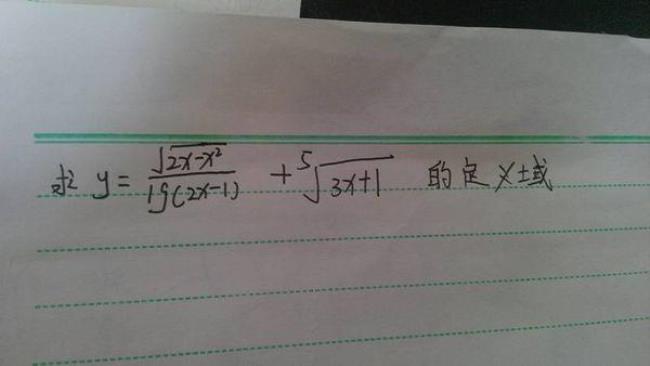 求 y = \frac{\sqrt{2x-x^2}}{lg(2x-1)} + \sqrt[5]{3x+1} 的定义域